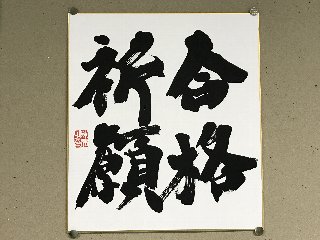 合格
祈願